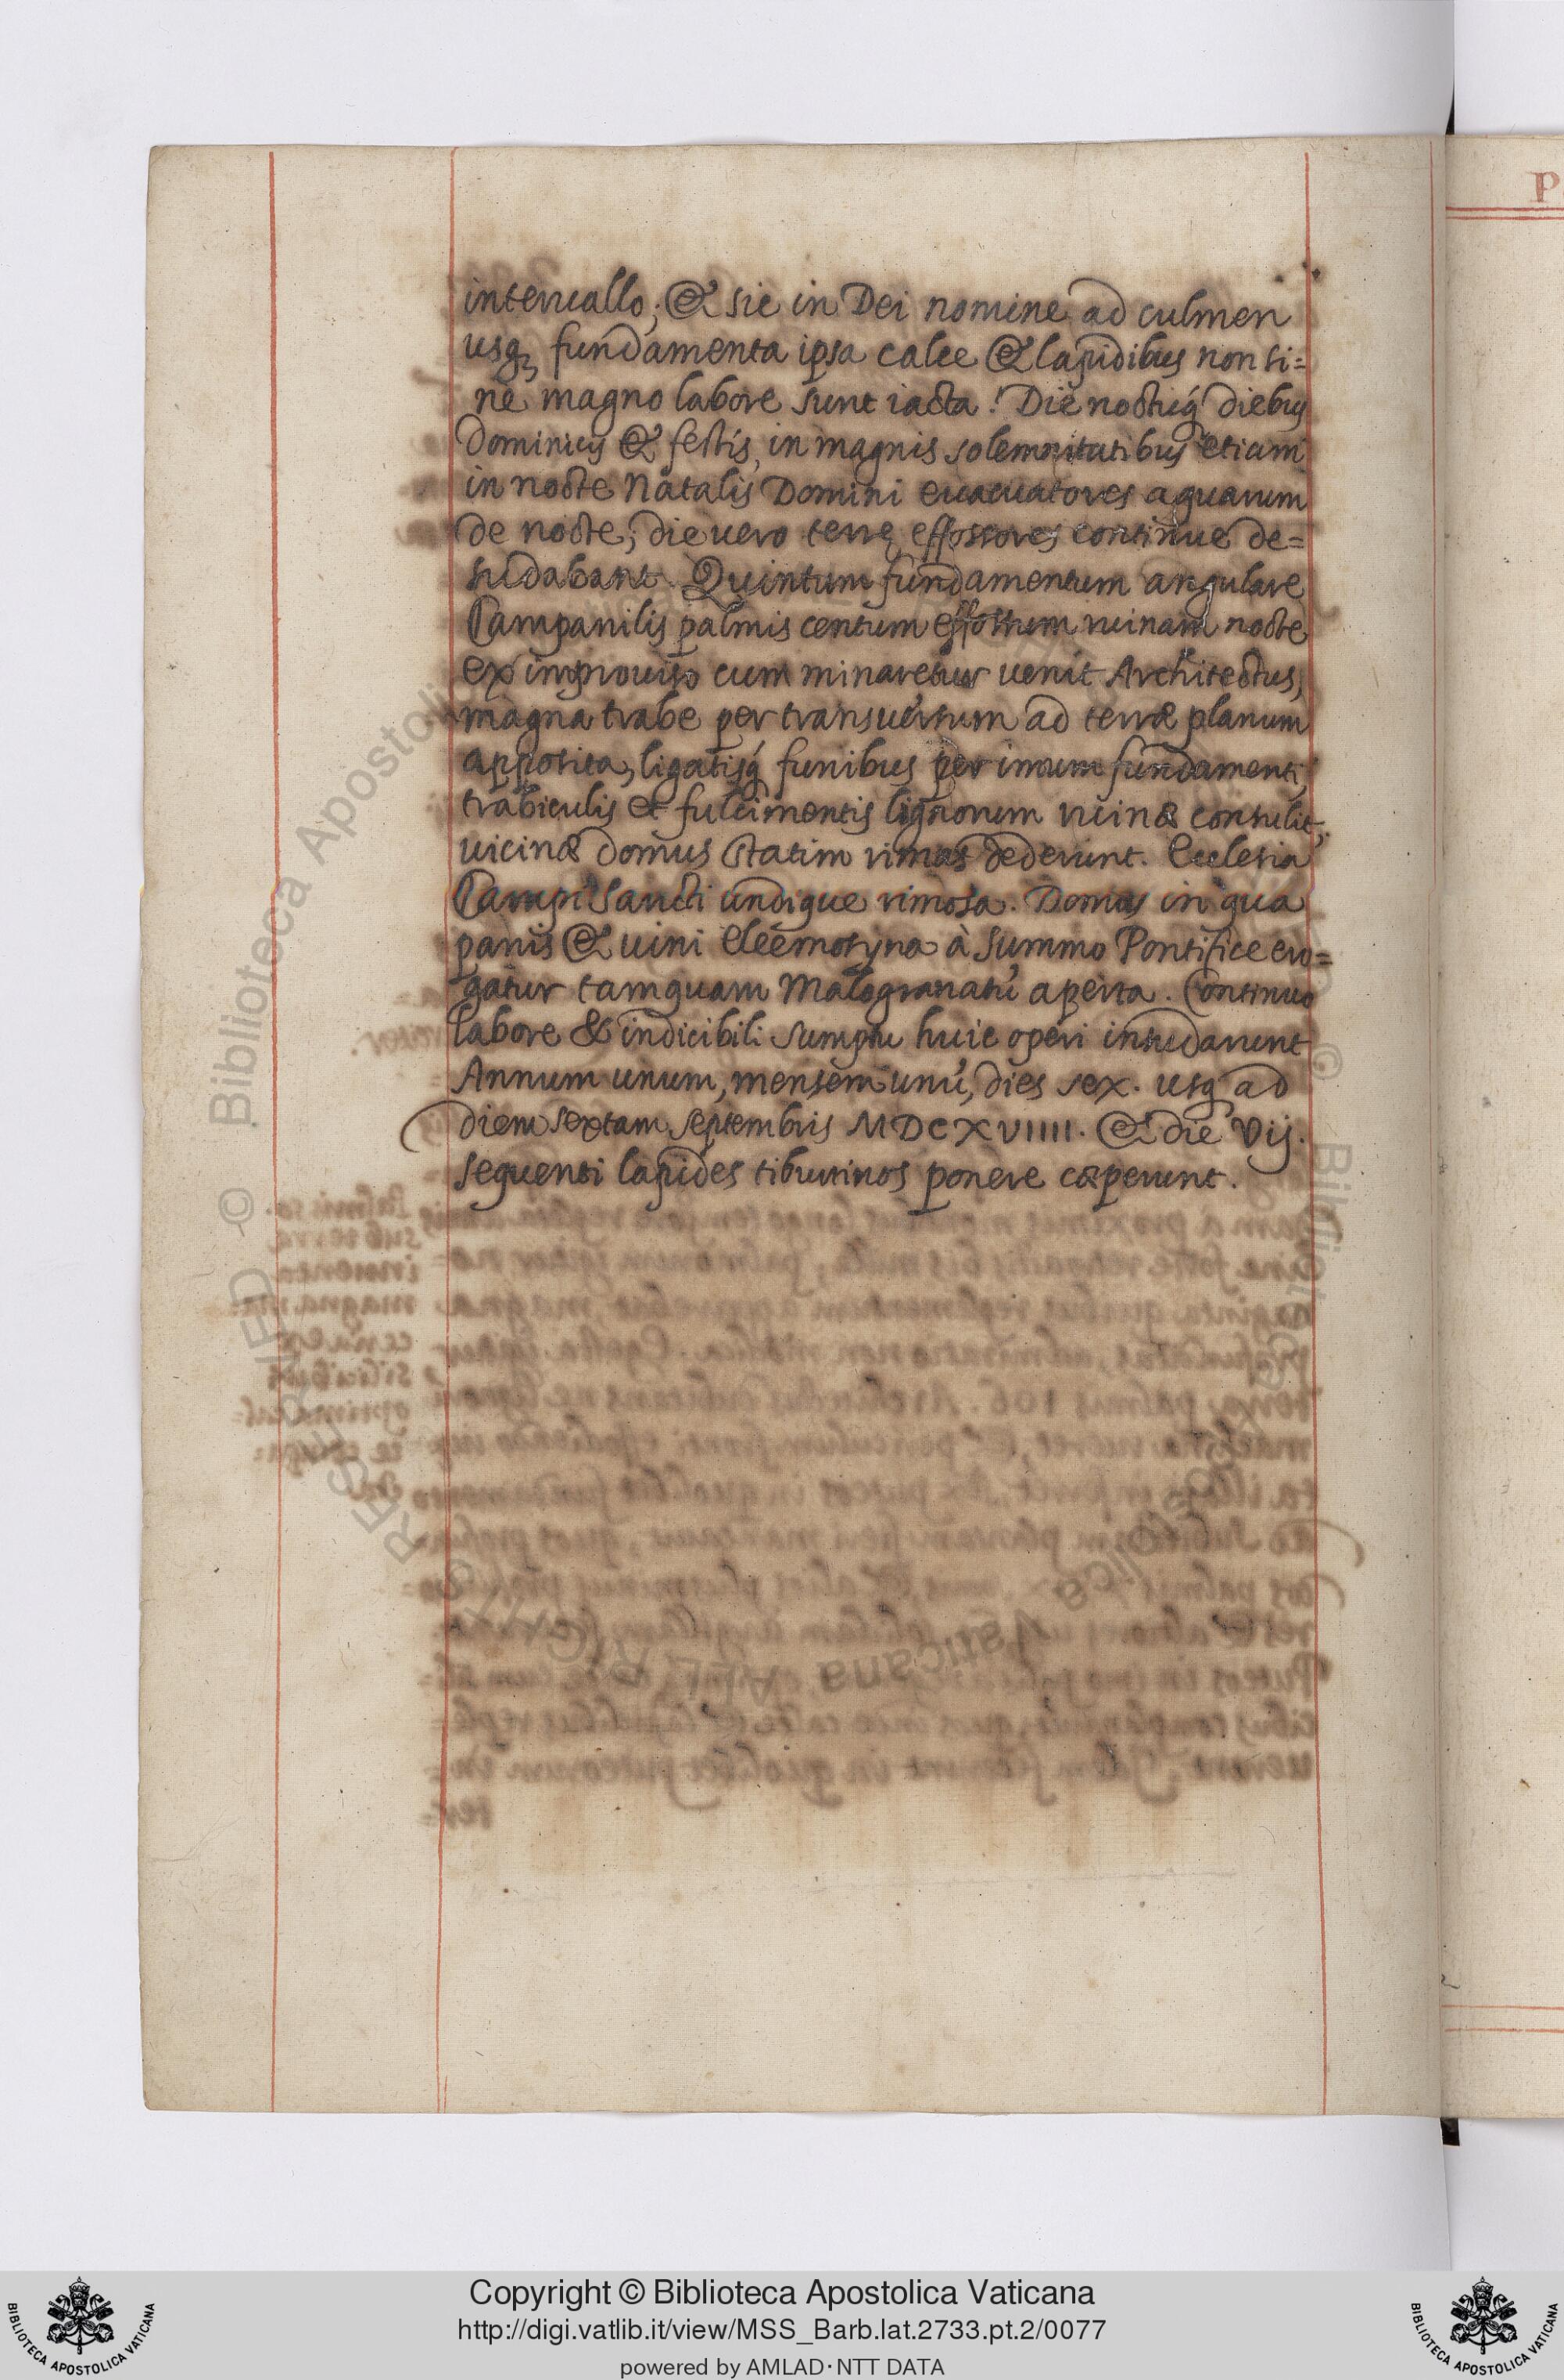 interuallo; & sic in Dei nomine ad culmen
usq, fundamenta ipsa calce & lapidibus non si=
nè magno labore sunt iacta. Die noctuq́ diebus
Dominicis & festis, in magnis solemnitatibus etiam
in nocte Natalis Domini euacuatores aquarum
de nocte; die uero terrę effossores continue de=
sudabant. Quintum fundamentum angulare
Campanilis palmis centum effossum ruinam nocte
ex improuiso cum minaretur uenit Architectus,
magna trabe per transuersum ad terræ planum
apposita, ligatisq́ funibus per imum fundamenti,
trabiculis et fulcimentis lignorum ruinæ consulit,
uicinæ domus statim rimas dederunt. Ecclesia
Campi Sancti undique rimosa. Domus in qua
panis & uini eleemosyna à Summo Pontifice ero=
gatur tamquam Malogranatū aperta. Continuo
labore & indicibili sumptu huic operi insudarunt
Annum unum, mensem unū, dies sex. usq ad
diem sextam septembris MDCXVIIII. & die Vij.
sequenti lapides tiburtinos ponere cæperunt.
P
Copyright © Biblioteca Apostolica Vaticana
http://digi.vatlib.it/view/MSS_Barb.lat.2733.pt.2/0077
powered by AMLAD·NTT DATA
BIBLIOTECA APOSTOLICA VATICANA
BIBLIOTECA APOSTOLICA VATICANA